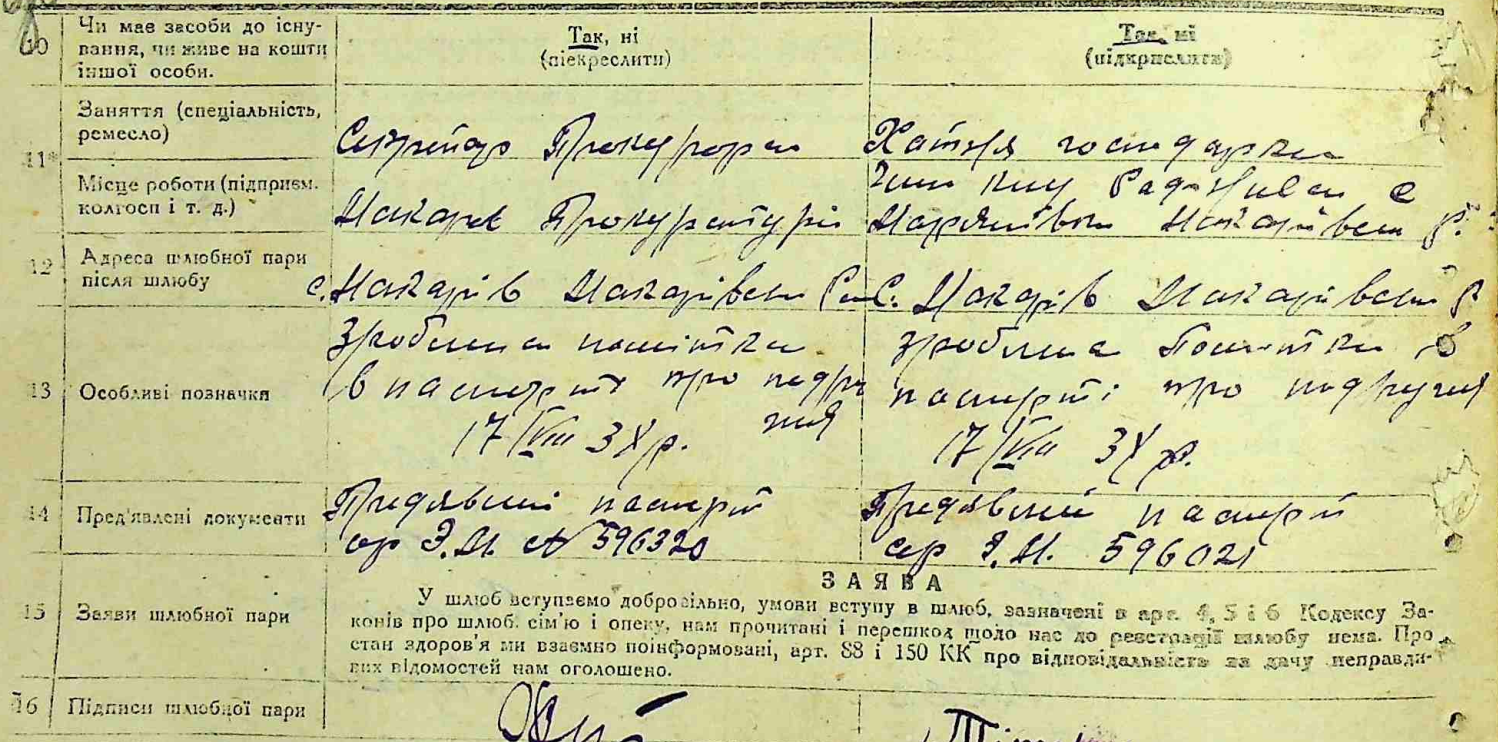 10 Чи має засоби до існу-
вання, чи живе на кошти
іншої особи.
Так, ні
(піекреслити)
Так, ні
(підкрислити)
11* Заняття (спеціальність,
ремесло)
Секретар Прокурора
Хатня господарка
Місце роботи (підприєм.
колгосп і т. д.)
Макарів Прокуратура
Макарівськ р.
12 Адреса шлюбної пари
після шлюбу
с. Макарів Макарівськ
С. Макарів Макарівськ р
13 Особливі позначкя
Зроблена помітка
в паспорті про подру
жжя
17/VIII 3 р.
зроблена Помітка в
паспорті про подружжя
17/VIII 3 р.
14 Пред'явлені документи
Предявлен паспорт
сер Э.М. № 596320
Предявлен паспорт
сер Э.М. 596021
15 Заяви шлюбної пари
ЗАЯВА
У шлюб вступаємо добровільно, умови вступу в шлюб, зазначені в арт. 4, 5 і 6 Кодексу За-
конів про шлюб, сім'ю і опеку, нам прочитані і перешкод щодо нас до реєстрації шлюбу нема. Про
стан здоров'я ми взаємно поінформовані, арт. 88 і 150 КК про відповідальність за дачу неправди-
вих відомостей нам оголошено.
16 Підписи шлюбної пари